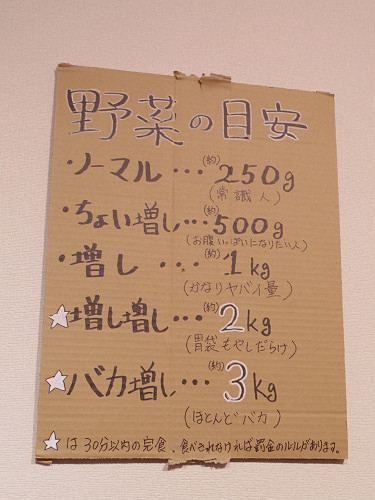 野菜の目安
・ノーマル・・・(約)250g
(常識人)
・ちょい増し・・・(約)500g
(お腹いっぱいになりたい人)
・増し・・・(約)1kg
(かなりヤバイ量)
☆増し増し・・・(約)2kg
(胃袋もやしだらけ)
☆バカ増し・・・(約)3kg
(ほとんどバカ)
☆は30分以内の完食、食べきれなければ罰金のルルがあります。